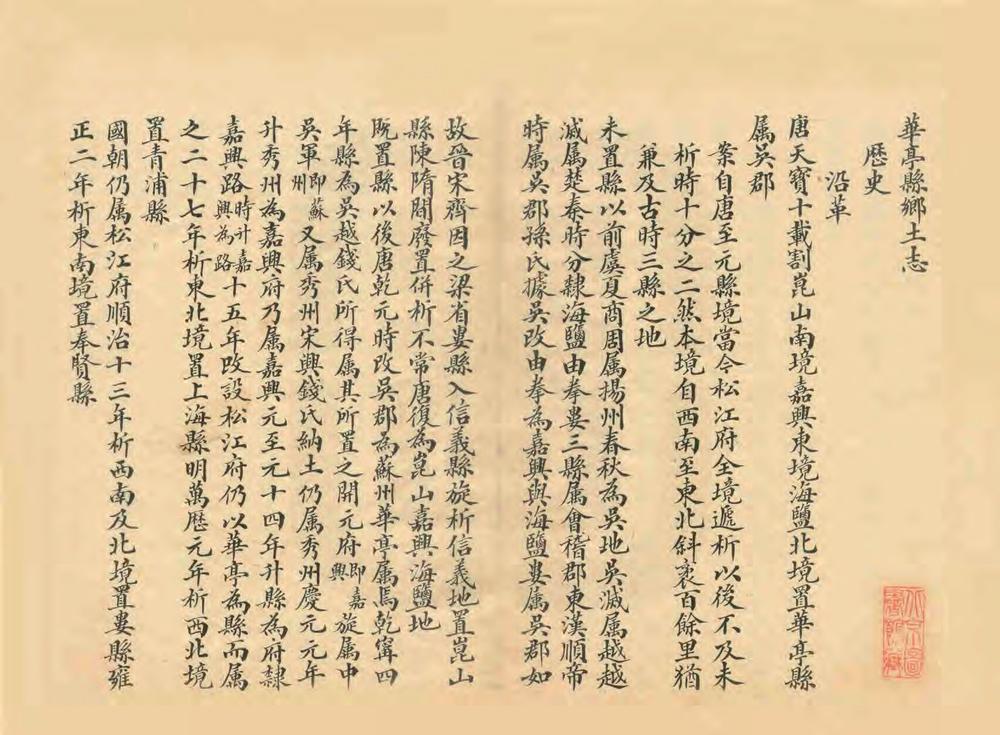 華亭縣鄉土志
歷史
沿革
唐天寶十載割崑山南境嘉興東境海鹽北境置華亭縣
属吳郡
案自唐至元縣境當今松江府全境遞析以後不及未
析時十分之二然本境自西南至東北斜袤百餘里猶
兼及古時三縣之地
未置縣以前虞夏商周属揚州春秋為吳地吳滅属越越
滅属楚秦時分隸海鹽由拳婁三縣属會稽郡東漢順帝
時属吳郡孫氏據吳改由拳為嘉興與海鹽婁属吳郡如
故晉宋齊因之梁省婁縣入信義縣旋析信義地置崑山
縣陳隋間廢置併析不常唐復為崑山嘉興海鹽地
既置縣以後唐乾元時改吳郡為蘇州華亭属焉乾寧四
年縣為吳越錢氏所得属其所置之開元府即嘉興旋属中
吳軍即蘇州又属秀州宋興錢氏納土仍属秀州慶元元年
升秀州為嘉興府乃属嘉興元至元十四年升縣為府隸
嘉興路時升嘉興為路十五年改設松江府仍以華亭為縣而属
之二十七年析東北境置上海縣明萬歷元年析西北境
置青浦縣
國朝仍属松江府順治十三年析西南及北境置婁縣雍
正二年析東南境置奉賢縣